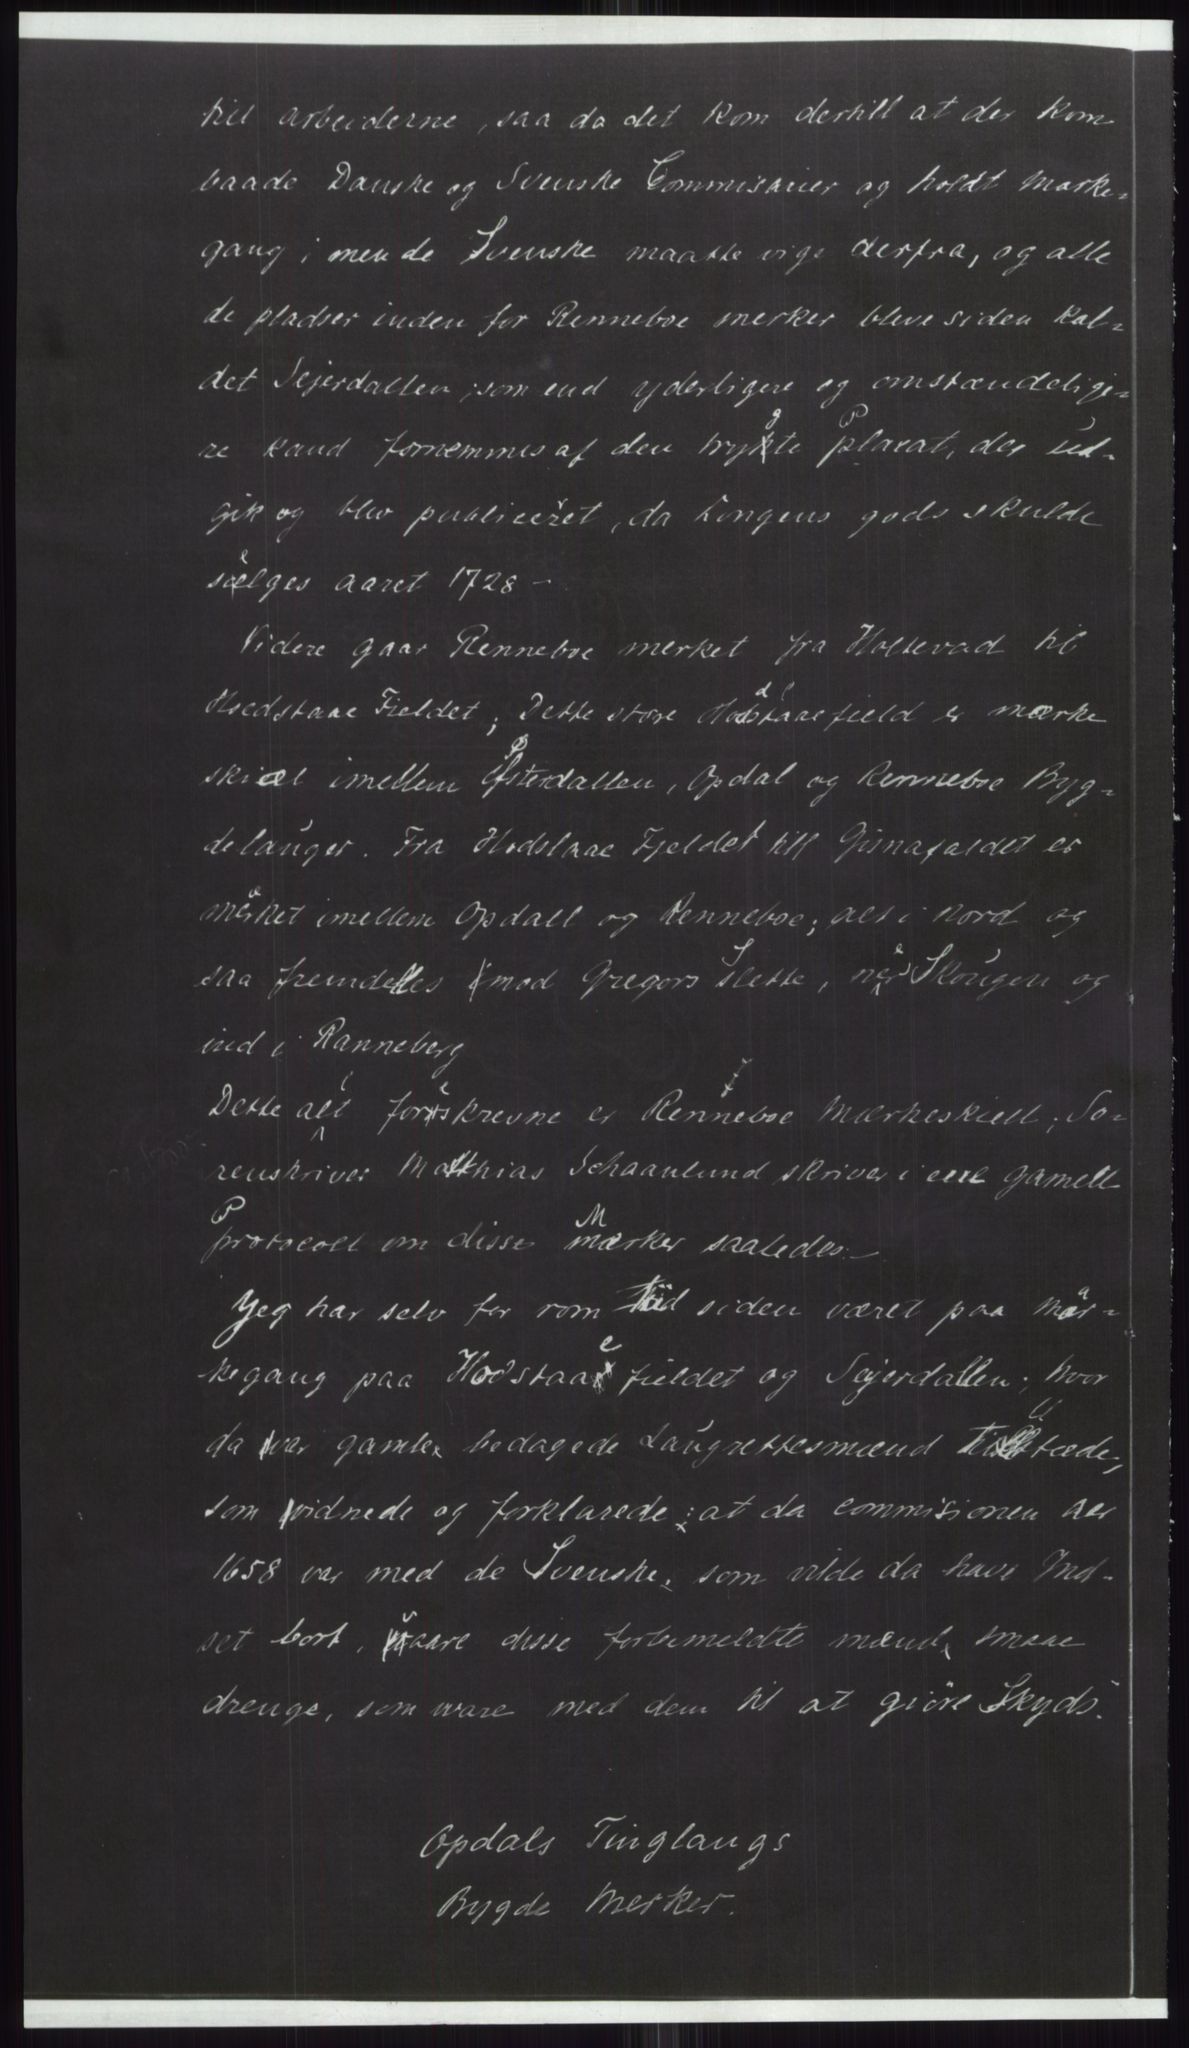 til arbeiderne, saa da det kom dertill at der kom
baade Danske og Svenske Commisarier og holdt marke-
gang; men de Svenske maatte vige derfra, og alle
de pladser inden for Renneboe merker bleve siden kal-
det Sejerdallen; som end yderligere og omstændelige-
re kand fornemmes af den trygte Placat, der ud-
gik og blev publiceret, da kongens gods skulde
selges aaret 1728 -
Videre gaar Renneboe merket fra Holtevad til
Hoedstaae Fieldet; Dette store Hodstaaefield er mærke
skiæl imellem Østerdallen, Opdal og Renneboe Byg-
delauger. Fra Hodstaae Fjeldet till Gisnafaldet er
mærket imellem Opdall og Renneboe; alt i Nord og
saa fremdelles imod Gregors Slette, nær Skougen og
ind i Ranneberg
Dette alt foreskrevne er Renneboe Mærkeskiell; So-
renskriver Matthias Schaanlund skriver i een gamell
Protocoll om disse Mærker saaledes:-
Jeg har selv for rom tiid siden været paa mar-
kegang paa Hodstaae fieldet og Sejerdallen; hvor
da var gamle bedagede Laugrettesmænd tilstæde,
som vidnede og forklarede: at da commisionen aar
1658 var med de Svenske, som vilde da have Ind-
set bort, vaare disse forbemeldte mænd smaae
drenge, som vare med dem til at giöre Skyds.
Opdals Tinglaugs
Bygde Merker.